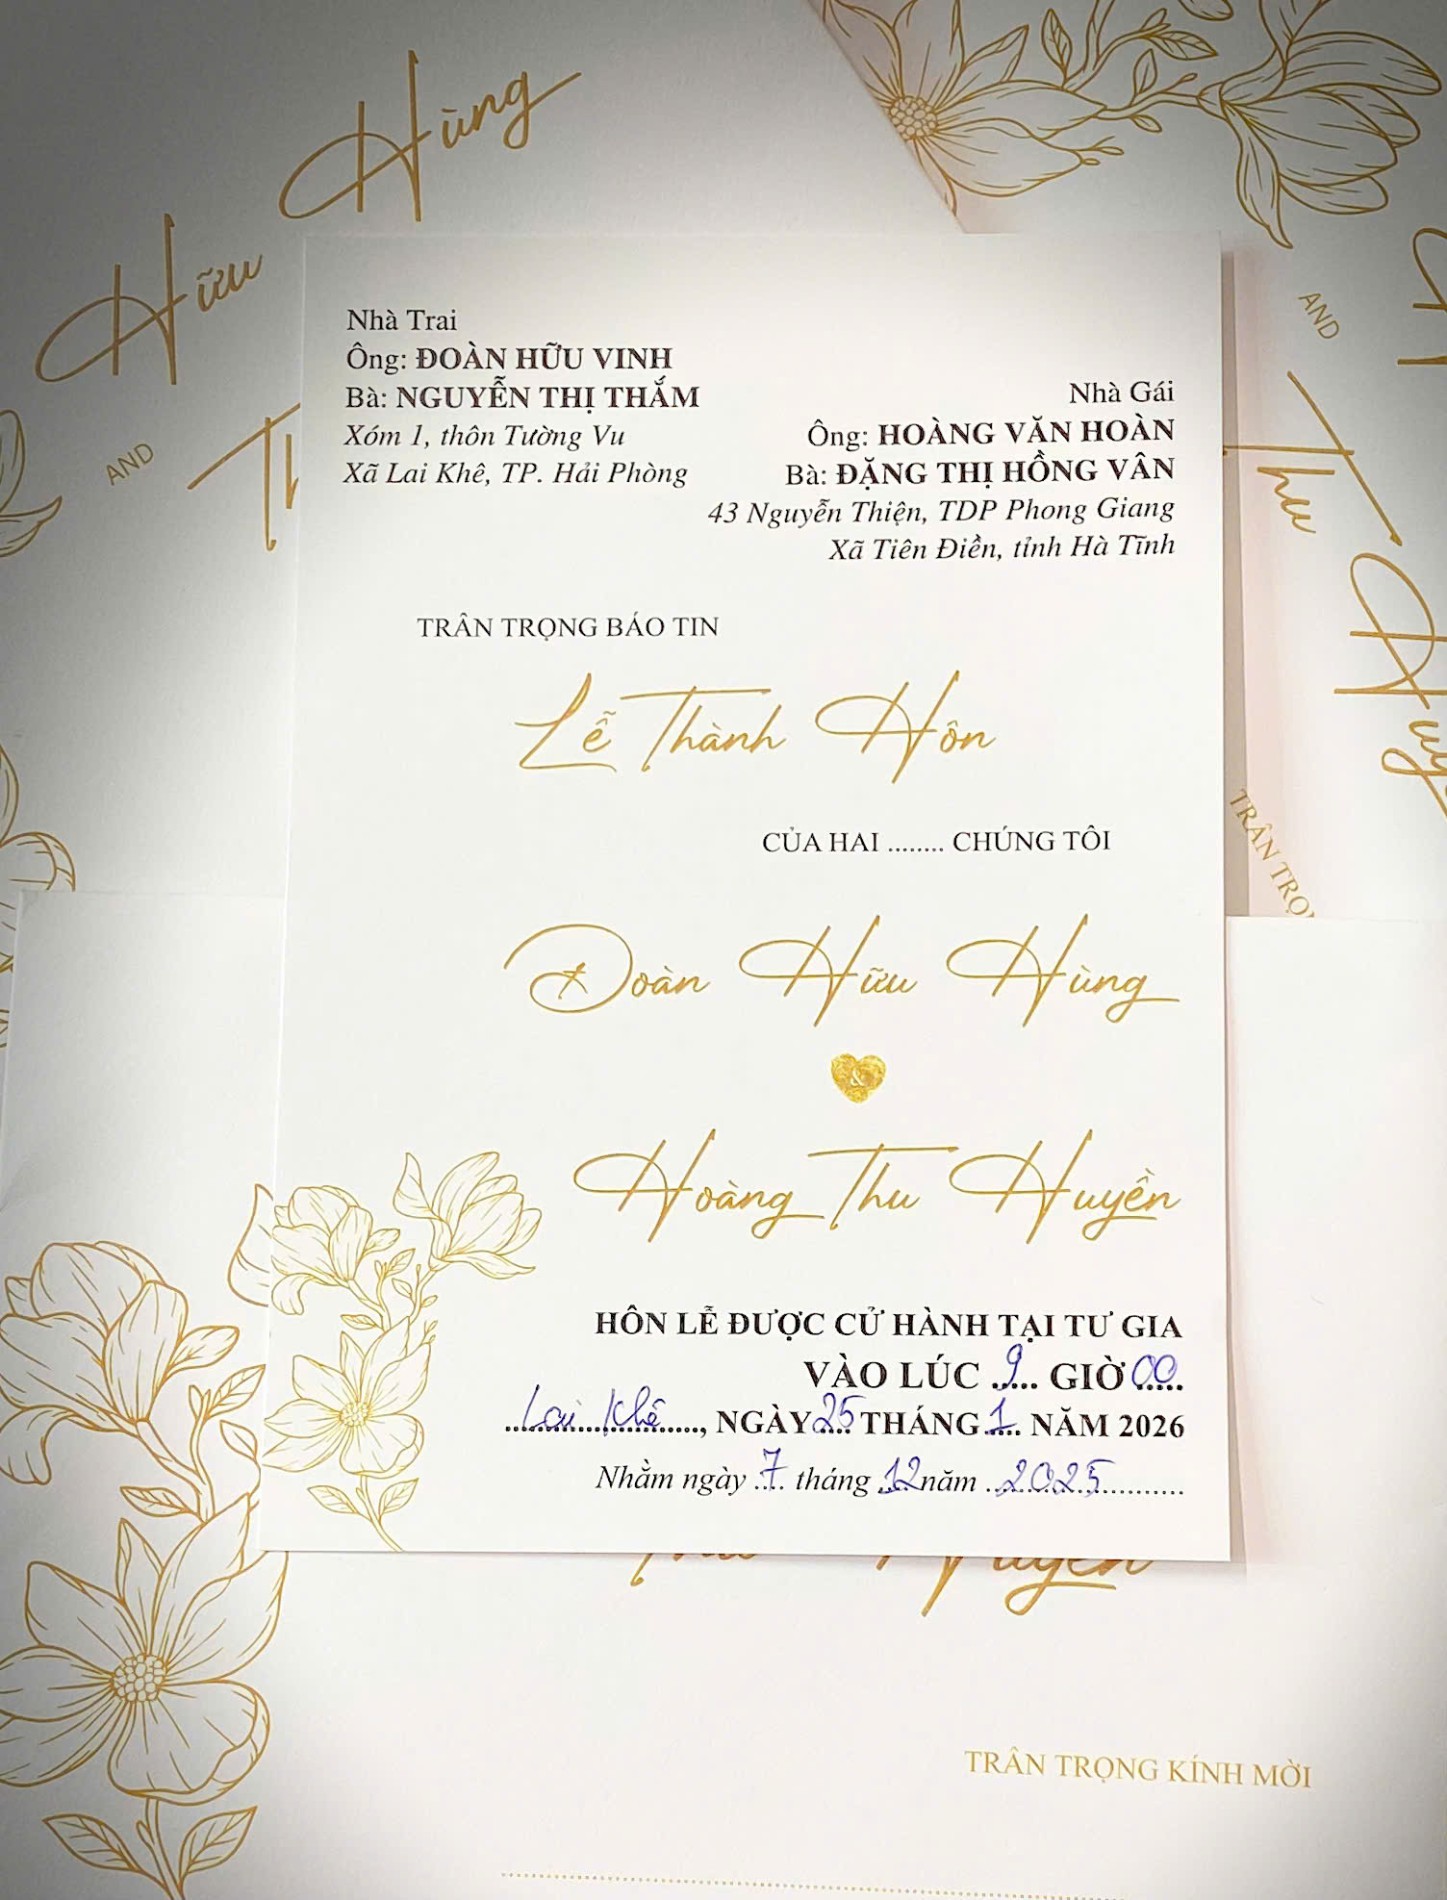 Hữu Hùng
AND
AND
Thu
TRÂN TRỌ
Nhà Trai
Ông: ĐOÀN HỮU VINH
Bà: NGUYỄN THỊ THẮM
Xóm 1, thôn Tường Vu
Xã Lai Khê, TP. Hải Phòng
Nhà Gái
Ông: HOÀNG VĂN HOÀN
Bà: ĐẶNG THỊ HỒNG VÂN
43 Nguyễn Thiện, TDP Phong Giang
Xã Tiên Điền, tỉnh Hà Tĩnh
TRÂN TRỌNG BÁO TIN
Lễ Thành Hôn
CỦA HAI ........ CHÚNG TÔI
Đoàn Hữu Hùng
&
Hoàng Thu Huyền
HÔN LỄ ĐƯỢC CỬ HÀNH TẠI TƯ GIA
VÀO LÚC 9 GIỜ 00
Lai Khê, NGÀY 25 THÁNG 1 NĂM 2026
Nhằm ngày 7 tháng 12 năm 2025
TRÂN TRỌNG KÍNH MỜI